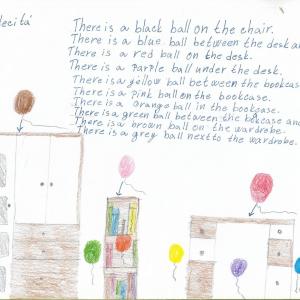 Felcitá
There is a black ball on the chair.
There is a blue ball between the desk an
There is a red ball on the desk.
There is a purple ball under the desk.
There is a yellow ball between the bookcas
There is a pink ball on the bookcase.
There is a orange ball in the bookcase.
There is a green ball between the bookcase and
There is a brown ball on the wardrobe.
There is a grey ball next to the wardrobe.